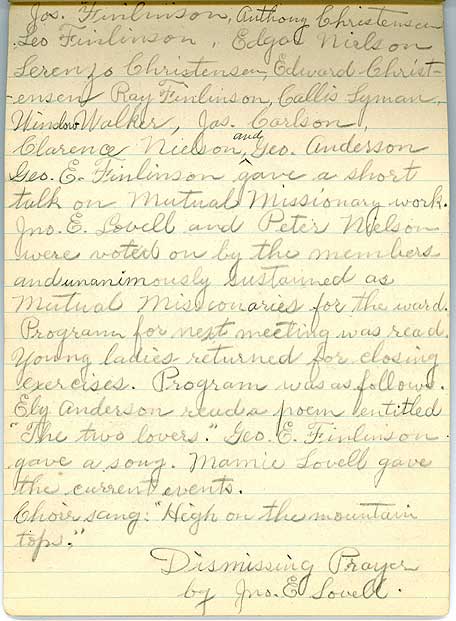 Jos. Finlinson, Anthony Christensen
Geo Finlinson, Edgar Nielson
Lerenzo Christensen, Edward Christ-
-ensen, Ray Finlinson, Callis Lyman,
Window Walker, Jas. Carlson,
Clarence Nielson, and Geo. Anderson
Geo. E. Finlinson gave a short
talk on Mutual Missionary work.
Jno. E. Lovell and Peter Nielson
were voted on by the members
and unanimously sustained as
Mutual Missionaries for the ward.
Program for next meeting was read.
Young ladies returned for closing
exercises. Program was as follows.
Ely Anderson read a poem entitled
"The two lovers." Geo. E. Finlinson
gave a song. Mamie Lovell gave
the current events.
Choir sang: "High on the mountain
tops."
Dismissing Prayer
by Jno. E Lovell.